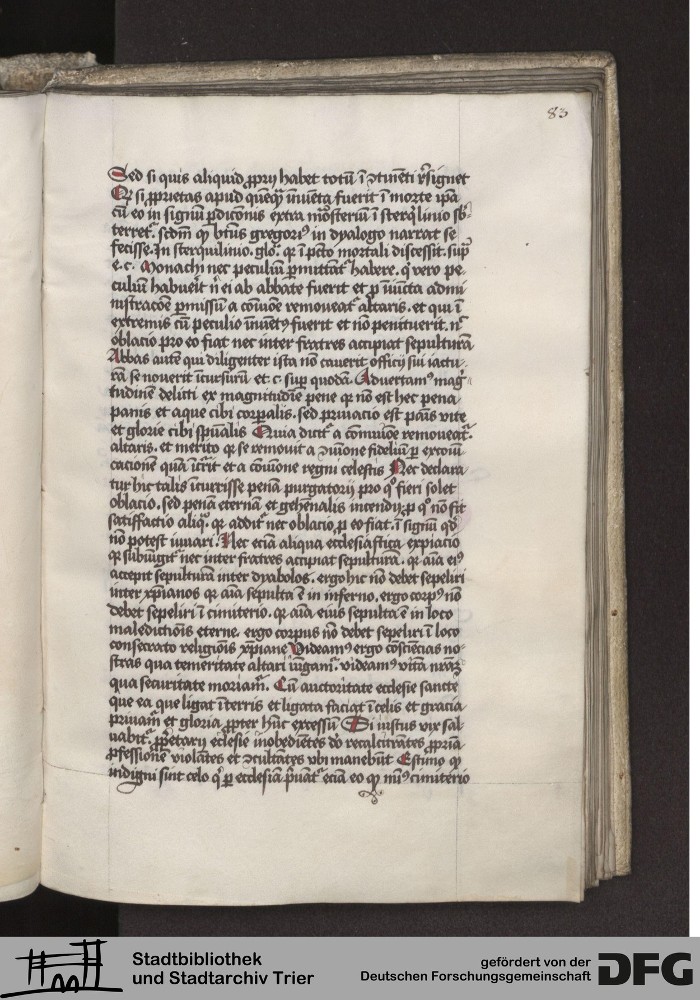 83
Sed si quis aliquid ꝓprij habet totū ī ↄtinēti r̄signet
Qꝛ si ꝓprietas apud quēqȝ inuēta fuerit ī morte ip̄a
cū eo in signū ꝑdicōnis extra mōsteriū ī sterq̇linio sb̄-
terret᷑. scdm̄ qꝫ btūs gregoriꝰ in dyalogo narrat se
fecisse. In sterquilinio. glo. qꝛ ī pctō mortali discessit. sup̄
e. c. Monachi nec peculiū ꝑmittāt᷑ habere. q̇ vero pe-
culium habuerīt n̄ ei ab abbate fuerit et ꝑ iniūcta admi
nistracōe ꝑmissū a cōīone remoueat᷑ altaris. et qui ī
extremis cū peculio inuētꝰ fuerit et nō penituerit. nc̄
oblacio pro eo fiat nec inter fratres accipiat sepulturā
Abbas autē qui diligenter ista nō cauerit officij sui iactu-
rā se nouerit īcursurū et. c. suꝑ quodā. Aduertamꝰ mag-
tudinē delicti ex magnitudīe pene qꝛ nō est hec pena
panis et aque cibi corꝑalis. sed priuacio est pāis vite
et glorie cibi spūalis Quia dicit᷑ a cōmuiōe remoueat᷑
altaris. et merito qꝛ se remouit a ↄīuōne fideliū ꝑ excoīū-
cationē quā īcr̄rit et a cōīuōne regni celestis Nec declara
tur hic talis īcurrisse penā purgatorij pro qᵒ fieri solet
oblacio. sed penā eternā et gehēnalis incendij. ꝓ qᵒ nō fit
satisfactio aliq̄. qꝛ addit᷑ nec oblacio ꝓ eo fiat. ī signū qd̄
nō potest iuuari. Nec eciā aliqua ecclesiastica expiacio
qꝛ subiūgit᷑ nec inter fratres accipiat sepulturā. qꝛ aīa eiꝰ
accepit sepulturā inter dyabolos. ergo hic nō debet sepeliri
inter xp̄ianos qꝛ aīa sepulta ē in inferno. ergo corpꝰ nō
debet sepeliri ī cimiterio. qꝛ aīa eius sepulta ē in loco
maledictiōis eterne. ergo corpus nō debet sepeliri ī loco
consecrato religiōis xp̄iane Videamꝰ ergo cōsciēcias no-
stras qua temeritate altari iūgam᷑. videamꝰ vitā nr̄aꝫ
qua securitate moriam᷑. Cū auctoritate ecclesie sancte
que ea que ligat ī terris et ligata faciat ī celis et gracia
priuam᷑ et gloria ꝓpter hūc excessū Si iustus vix sal-
uabit᷑. ꝓp̄etarij ecclesie īnobediētes dō recalcitrātes ꝓpriā
ꝓfessionē violātes et ↄcultātes vbi manebūt Estimo qꝫ
indigni sint celo q̇ ꝑ ecclesiā p̄uāt᷑ eciā eo qꝫ minꝰ cimiterio
Stadtbibliothek
und Stadtarchiv Trier
gefördert von der
Deutschen Forschungsgemeinschaft
DFG